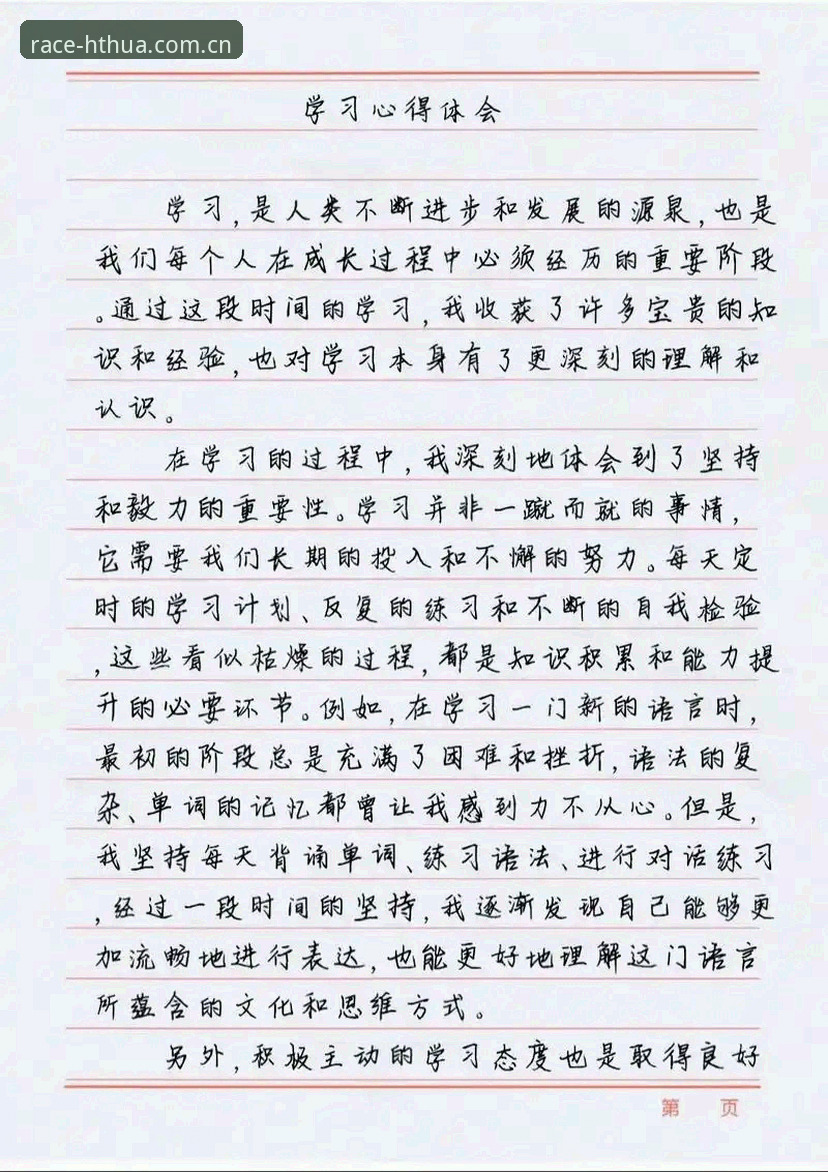 race-hthua.com.cn
学习心得体会
学习,是人类不断进步和发展的源泉,也是
我们每个人在成长过程中必须经历的重要阶段
。通过这段时间的学习,我收获了许多宝贵的知
识和经验,也对学习本身有了更深刻的理解和
认识。
在学习的过程中,我深刻地体会到了坚持
和毅力的重要性。学习并非一蹴而就的事情,
它需要我们长期的投入和不懈的努力。每天定
时的学习计划、反复的练习和不断的自我检验
,这些看似枯燥的过程,都是知识积累和能力提
升的必要环节。例如,在学习一门新的语言时,
最初的阶段总是充满了困难和挫折,语法的复
杂、单词的记忆都曾让我感到力不从心。但是,
我坚持每天背诵单词、练习语法、进行对话练习
,经过一段时间的坚持,我逐渐发现自己能够更
加流畅地进行表达,也能更好地理解这门语言
所蕴含的文化和思维方式。
另外,积极主动的学习态度也是取得良好
第 页